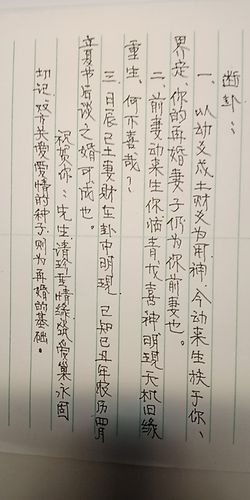 断卦：
一、以动爻戌土财爻为用神，今动来生扶于你、
界定，你的再婚妻子仍为你前妻也。
二、前妻动来生你临青龙喜神明现天机旧缘
重生、何不喜哉？
三、日辰己土妻财在卦中明现，已知己丑年农历四
立夏节后谈之婚可成也。
祝贺你：先生请珍重情缘筑爱巢永固
切记，双方关爱爱情的种子，则为再婚的基础。